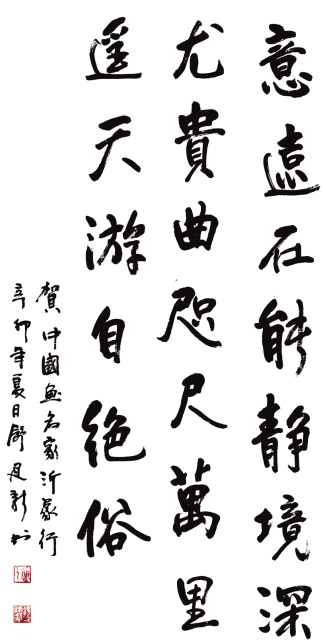 意遠在能静境深
尤貴曲咫尺萬里
遥天游自绝俗
賀中國画名家沂蒙行
辛卯年夏日舒建新书